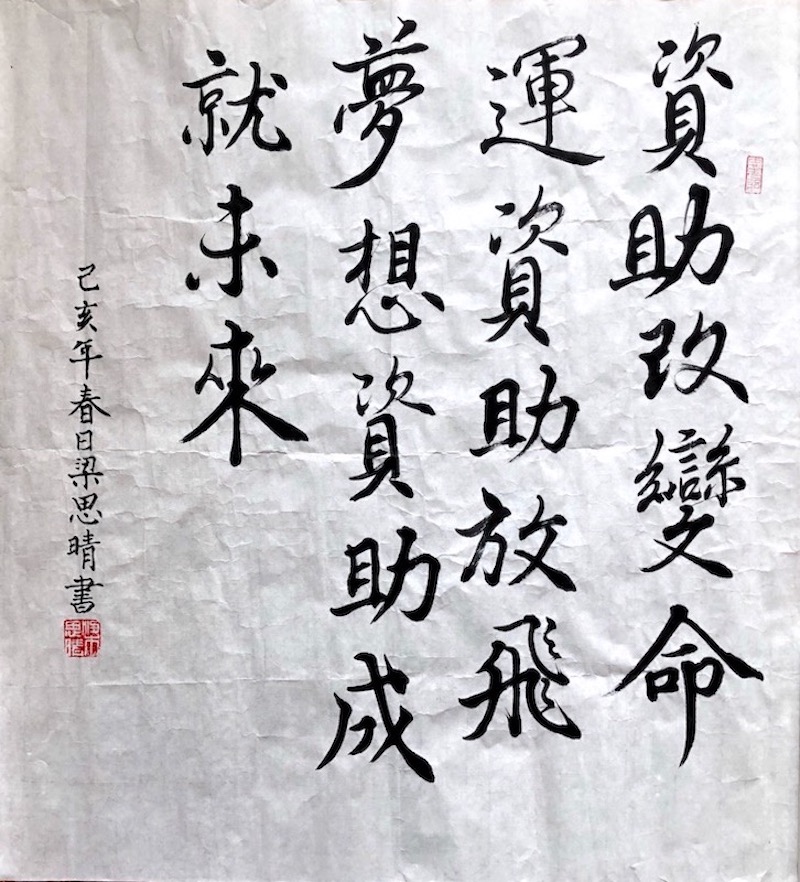 資助改變命
運資助放飛
夢想資助成
就未來
己亥年春日梁思晴書